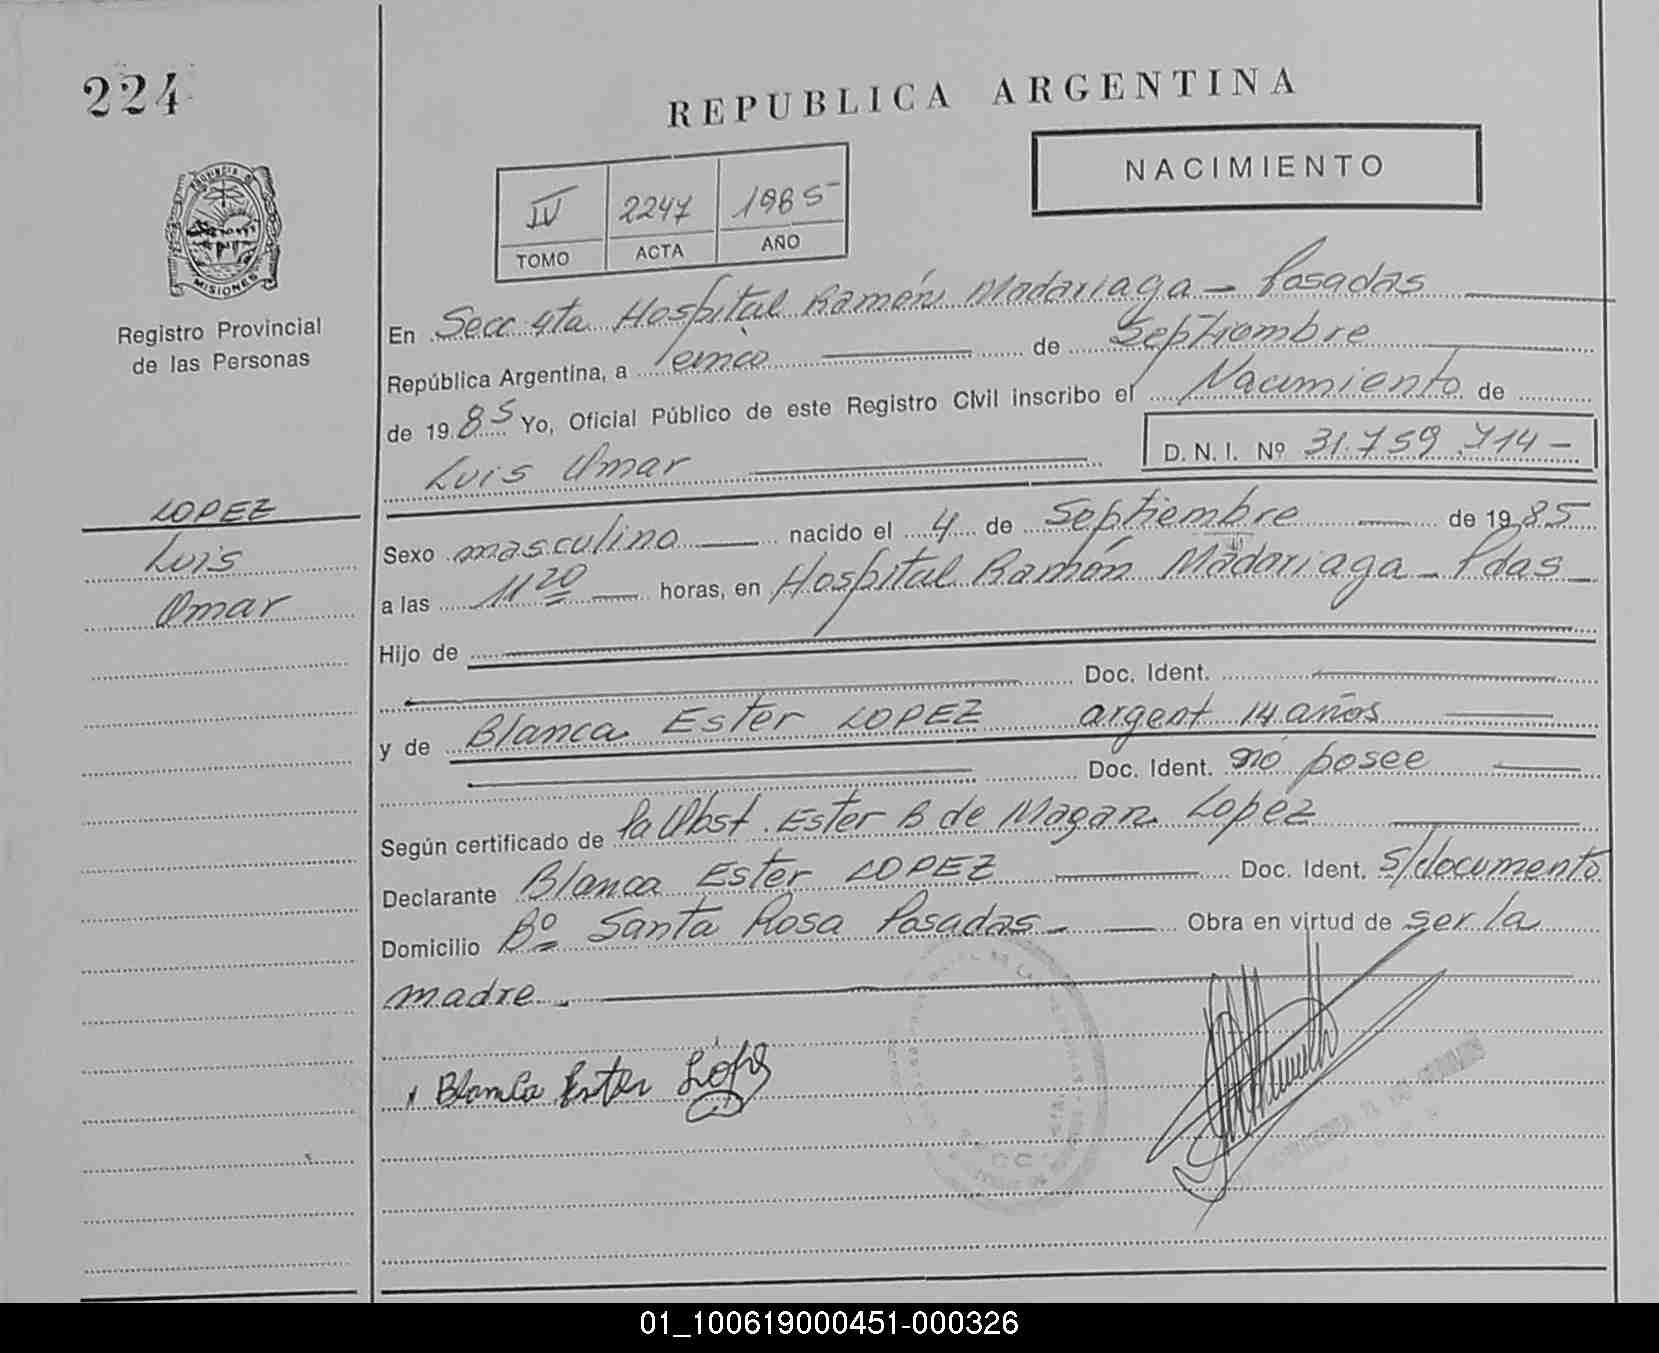 224
REPUBLICA ARGENTINA
NACIMIENTO
IV 2247 1985
TOMO ACTA AÑO
PROVINCIA DE
MISIONES
Registro Provincial
de las Personas
En Secc 4ta Hospital Ramón Madariaga - Posadas
República Argentina, a cinco de Septiembre
de 1985 Yo, Oficial Público de este Registro Civil inscribo el Nacimiento de
Luis Omar D. N. I. Nº 31.759.714-
LOPEZ
Luis
Omar
Sexo masculino nacido el 4 de Septiembre de 1985
a las 11 20 horas, en Hospital Ramón Madariaga - Pdas -
Hijo de
Doc. Ident.
y de Blanca Ester LOPEZ argent 14 años
Doc. Ident. no posee
Según certificado de la Obst. Ester B de Magan Lopez
Declarante Blanca Ester LOPEZ Doc. Ident. s/documento
Domicilio Bº Santa Rosa Posadas - Obra en virtud de ser la
madre.
Blanca Ester López
01_100619000451-000326